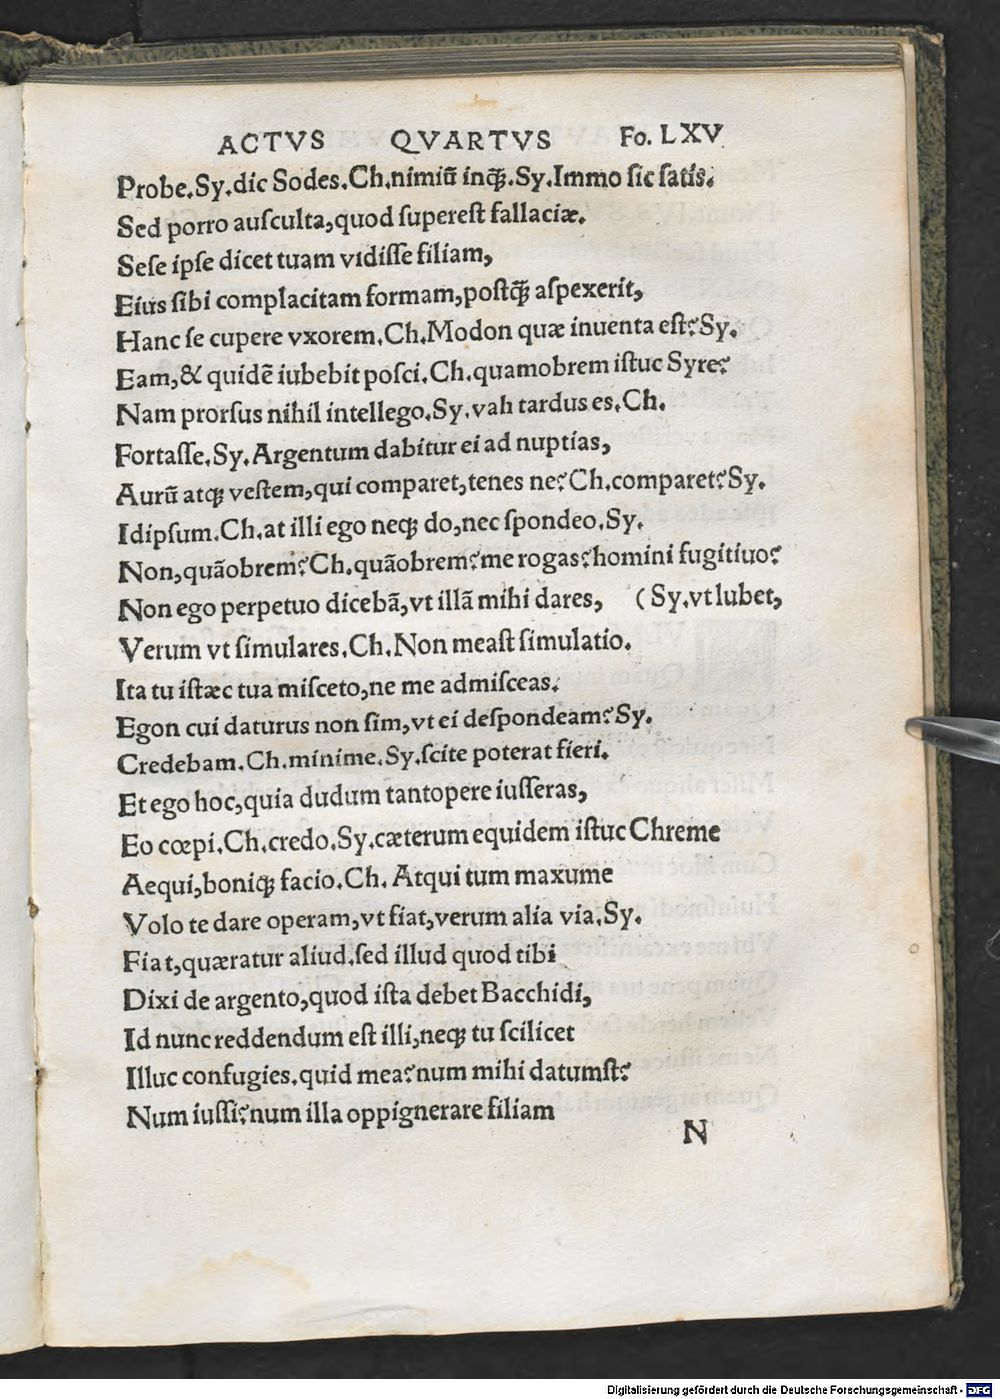 ACTVS QVARTVS Fo. LXV
Probe.Sy.dic Sodes.Ch.nimiū inqꝫ.Sy.Immo ſic ſatis.
Sed porro auſculta,quod ſupereſt fallaciæ.
Seſe ipſe dicet tuam vidiſſe filiam,
Eius ſibi complacitam formam,poſtqꝫ̄ aſpexerit,
Hanc ſe cupere vxorem.Ch.Modon quæ inuenta eſt?Sy.
Eam,& quidē iubebit poſci.Ch.quamobrem iſtuc Syre?
Nam prorſus nihil intellego.Sy.vah tardus es.Ch.
Fortaſſe.Sy.Argentum dabitur ei ad nuptias,
Aurū atqꝫ veſtem,qui comparet,tenes ne?Ch.comparet?Sy.
Idipſum.Ch.at illi ego neqꝫ do,nec ſpondeo.Sy.
Non,quāobrem?Ch.quāobrem?me rogas?homini fugitiuo?
Non ego perpetuo dicebā,vt illā mihi dares, (Sy.vt lubet,
Verum vt ſimulares.Ch.Non meaſt ſimulatio.
Ita tu iſtæc tua miſceto,ne me admiſceas.
Egon cui daturus non ſim,vt ei deſpondeam?Sy.
Credebam.Ch.minime.Sy.ſcite poterat fieri.
Et ego hoc,quia dudum tantopere iuſſeras,
Eo cœpi.Ch.credo.Sy.cæterum equidem iſtuc Chreme
Aequi,boniqꝫ facio.Ch.Atqui tum maxume
Volo te dare operam,vt fiat,verum alia via.Sy.
Fiat,quæratur aliud.ſed illud quod tibi
Dixi de argento,quod iſta debet Bacchidi,
Id nunc reddendum eſt illi,neqꝫ tu ſcilicet
Illuc confugies.quid mea?num mihi datumſt?
Num iuſſi?num illa oppignerare filiam
N
Digitalisierung gefördert durch die Deutsche Forschungsgemeinschaft - DFG